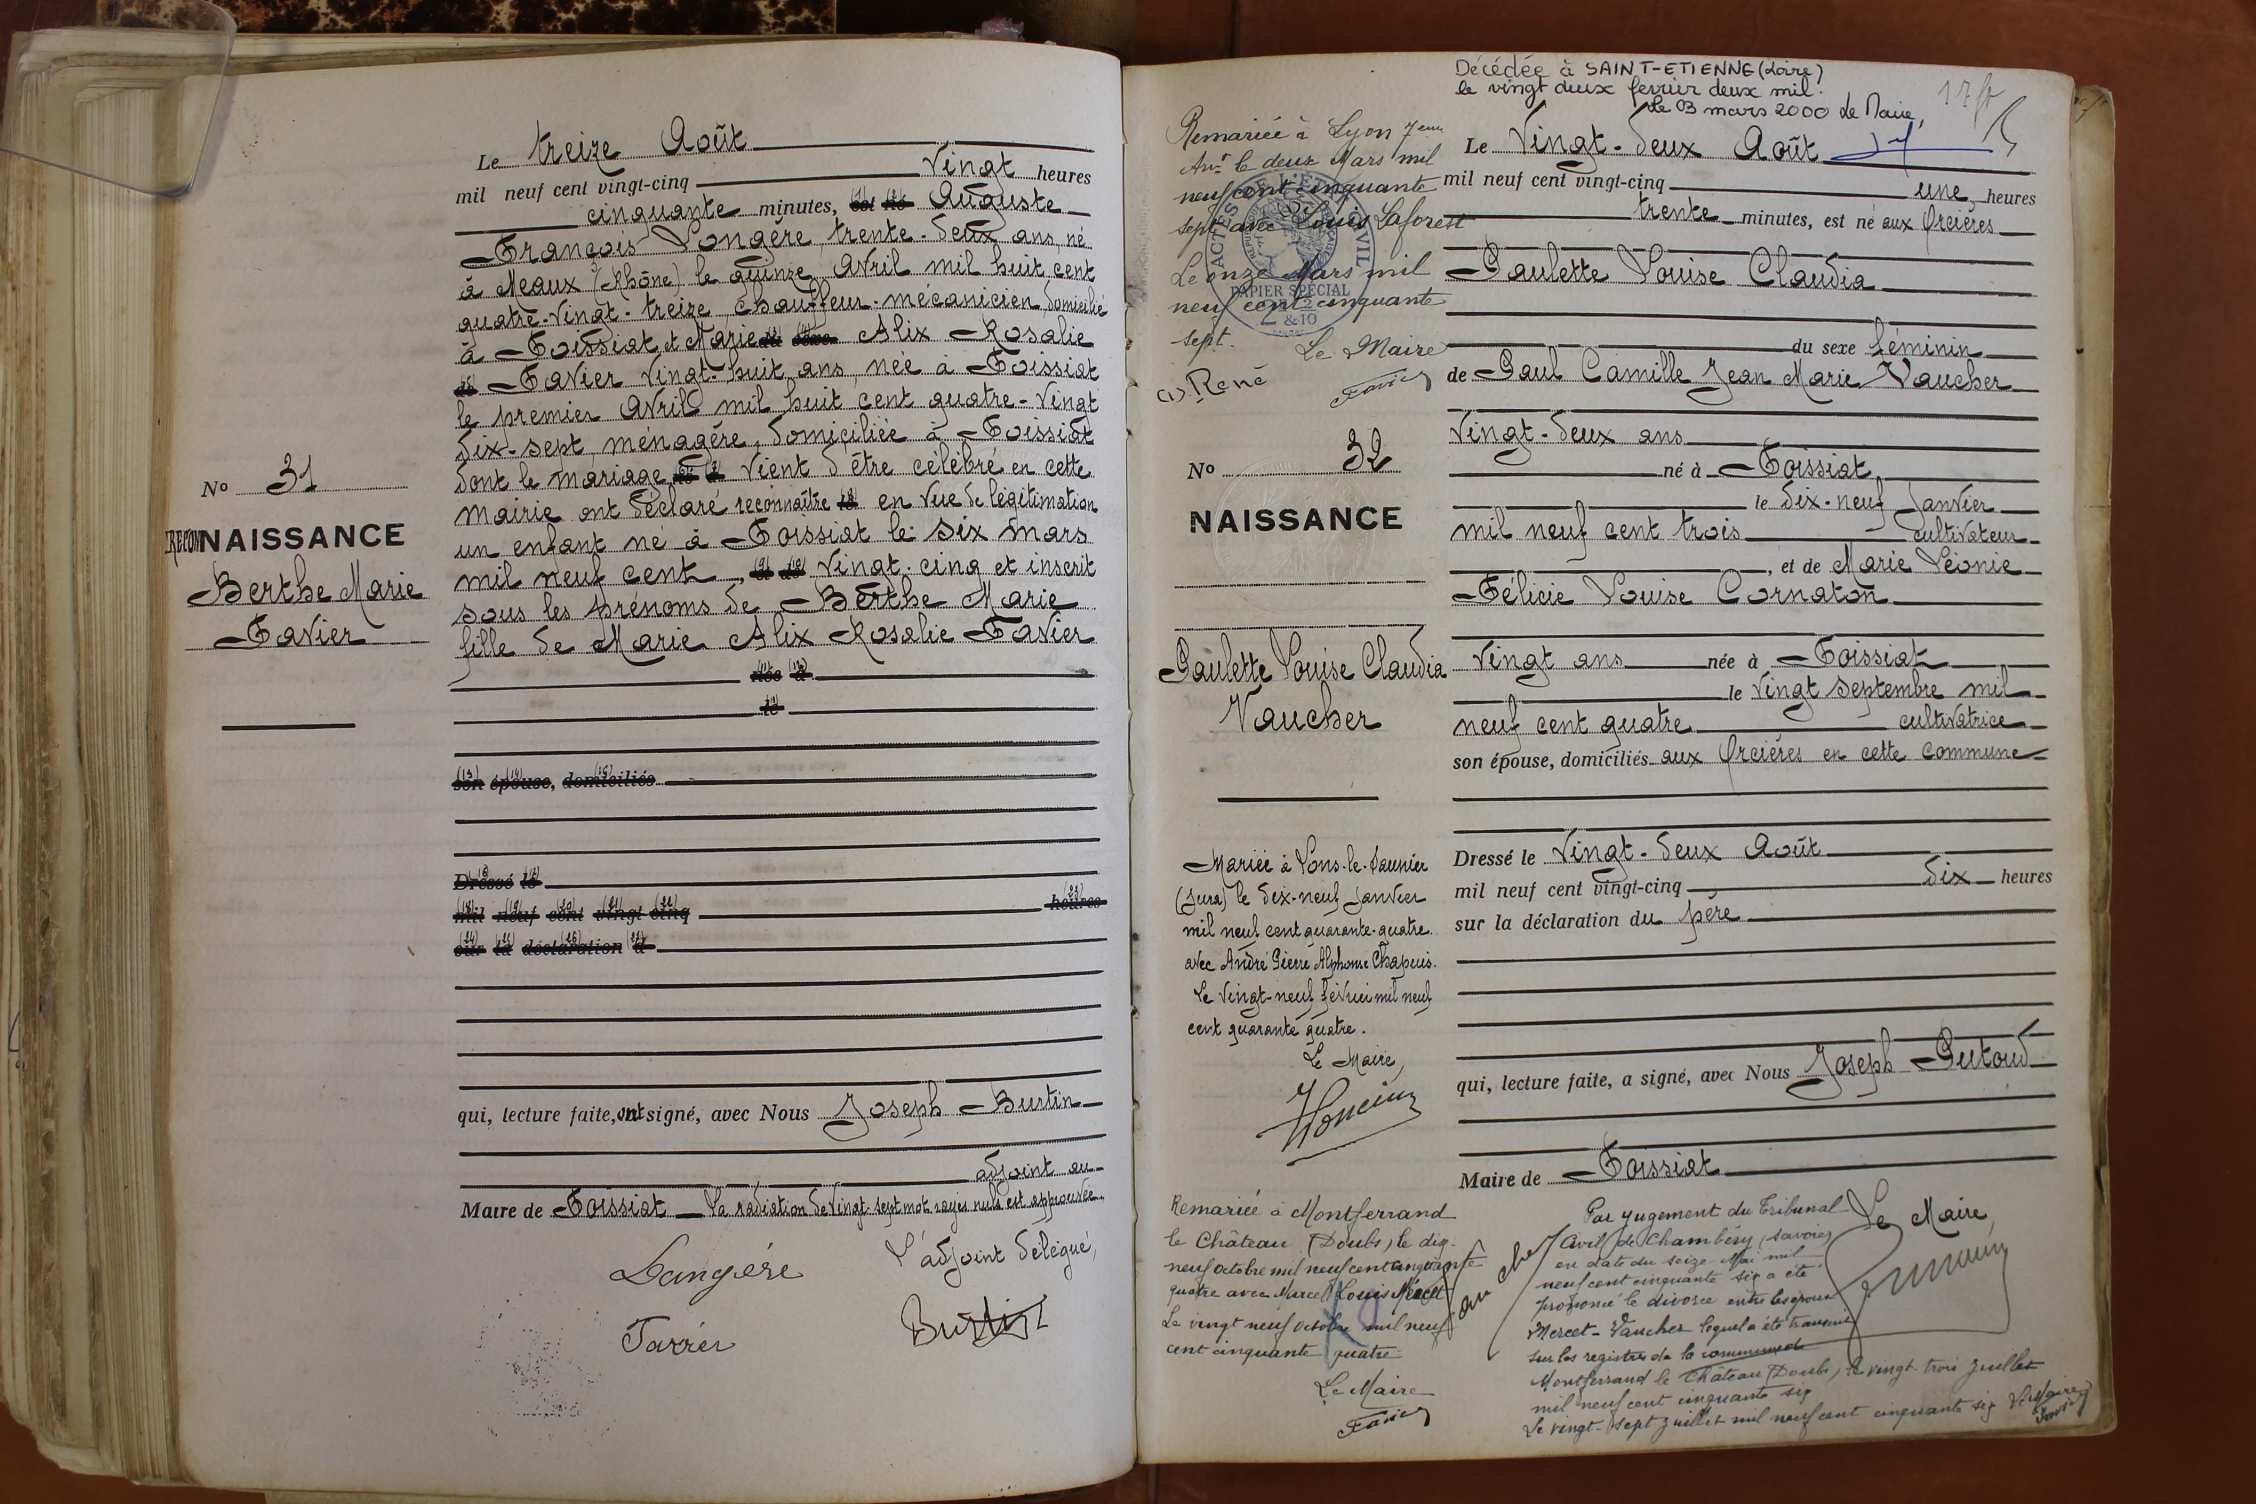 Le treize Août
mil neuf cent vingt-cinq vingt heures
cinquante minutes, est né Auguste
François Longère, trente-deux ans, né
à Meaux (Rhône) le quinze Avril mil huit cent
quatre-vingt-treize chauffeur-mécanicien, domicilié
à Foissiat, et Marie du sexe Alix Rosalie
de Favier vingt-huit ans, née à Foissiat
le premier Avril mil huit cent quatre-vingt
dix-sept, ménagère, domiciliée à Foissiat
dont le mariage vient d'être célébré en cette
mairie ont déclaré reconnaître en vue de légitimation
un enfant né à Foissiat le six mars
mil neuf cent, vingt-cinq et inscrit
sous les prénoms de Berthe Marie
fille de Marie Alix Rosalie Favier
née à
le
son épouse, domiciliés
Dressé le
mil neuf cent vingt-cinq heures
sur la déclaration d
qui, lecture faite, ont signé, avec Nous Joseph Burtin
adjoint au
Maire de Foissiat La radiation de vingt-sept mots rayés nuls est approuvée
L'adjoint délégué,
Longère
Favier
Burtin
No 31
RECONNAISSANCE
Berthe Marie
Favier
Décédée à SAINT-ETIENNE (Loire)
le vingt deux février deux mil.
Le 03 mars 2000 Le Maire,
Remariée à Lyon 7eme
Arrt le deux Mars mil
neuf cent cinquante
sept avec Louis Laforest
Le onze Mars mil
neuf cent cinquante
sept. Le Maire
(1) René
Favier
ACTES DE L'ETAT CIVIL
PAPIER SPECIAL
2 & 10
No 32
NAISSANCE
Paulette Louise Claudia
Vaucher
Mariée à Lons-le-Saunier
(Jura) le dix-neuf Janvier
mil neuf cent quarante-quatre
avec André Pierre Alphonse Chapuis.
Le vingt-neuf février mil neuf
cent quarante quatre.
Le Maire,
Remariée à Montferrand
le Château (Doubs) le dix-
neuf octobre mil neuf cent cinquante
quatre avec Marcel Louis Mercet
Le vingt neuf octobre mil neuf
cent cinquante quatre
Le Maire
Favier
Le Vingt-deux Août
mil neuf cent vingt-cinq une heures
trente minutes, est né aux Orcières
Paulette Louise Claudia
du sexe féminin
de Paul Camille Jean Marie Vaucher
vingt-deux ans
né à Foissiat
le dix-neuf Janvier
mil neuf cent trois cultivateur
, et de Marie Léonie
Félicie Louise Cornaton
vingt ans née à Foissiat
le vingt septembre mil
neuf cent quatre cultivatrice
son épouse, domiciliés aux Orcières en cette commune
Dressé le vingt-deux Août
mil neuf cent vingt-cinq dix heures
sur la déclaration du père
qui, lecture faite, a signé, avec Nous Joseph Putoud
Maire de Foissiat
Le Maire,
Par jugement du Tribunal
Civil de Chambéry, Savoie,
en date du seize Mai mil
neuf cent cinquante six a été
prononcé le divorce entre les époux
Mercet-Vaucher lequel a été transmis
sur les registres de la commune de
Montferrand le Château (Doubs) le vingt-trois juillet
mil neuf cent cinquante six
Le vingt-sept juillet mil neuf cent cinquante six Le Maire
Favier